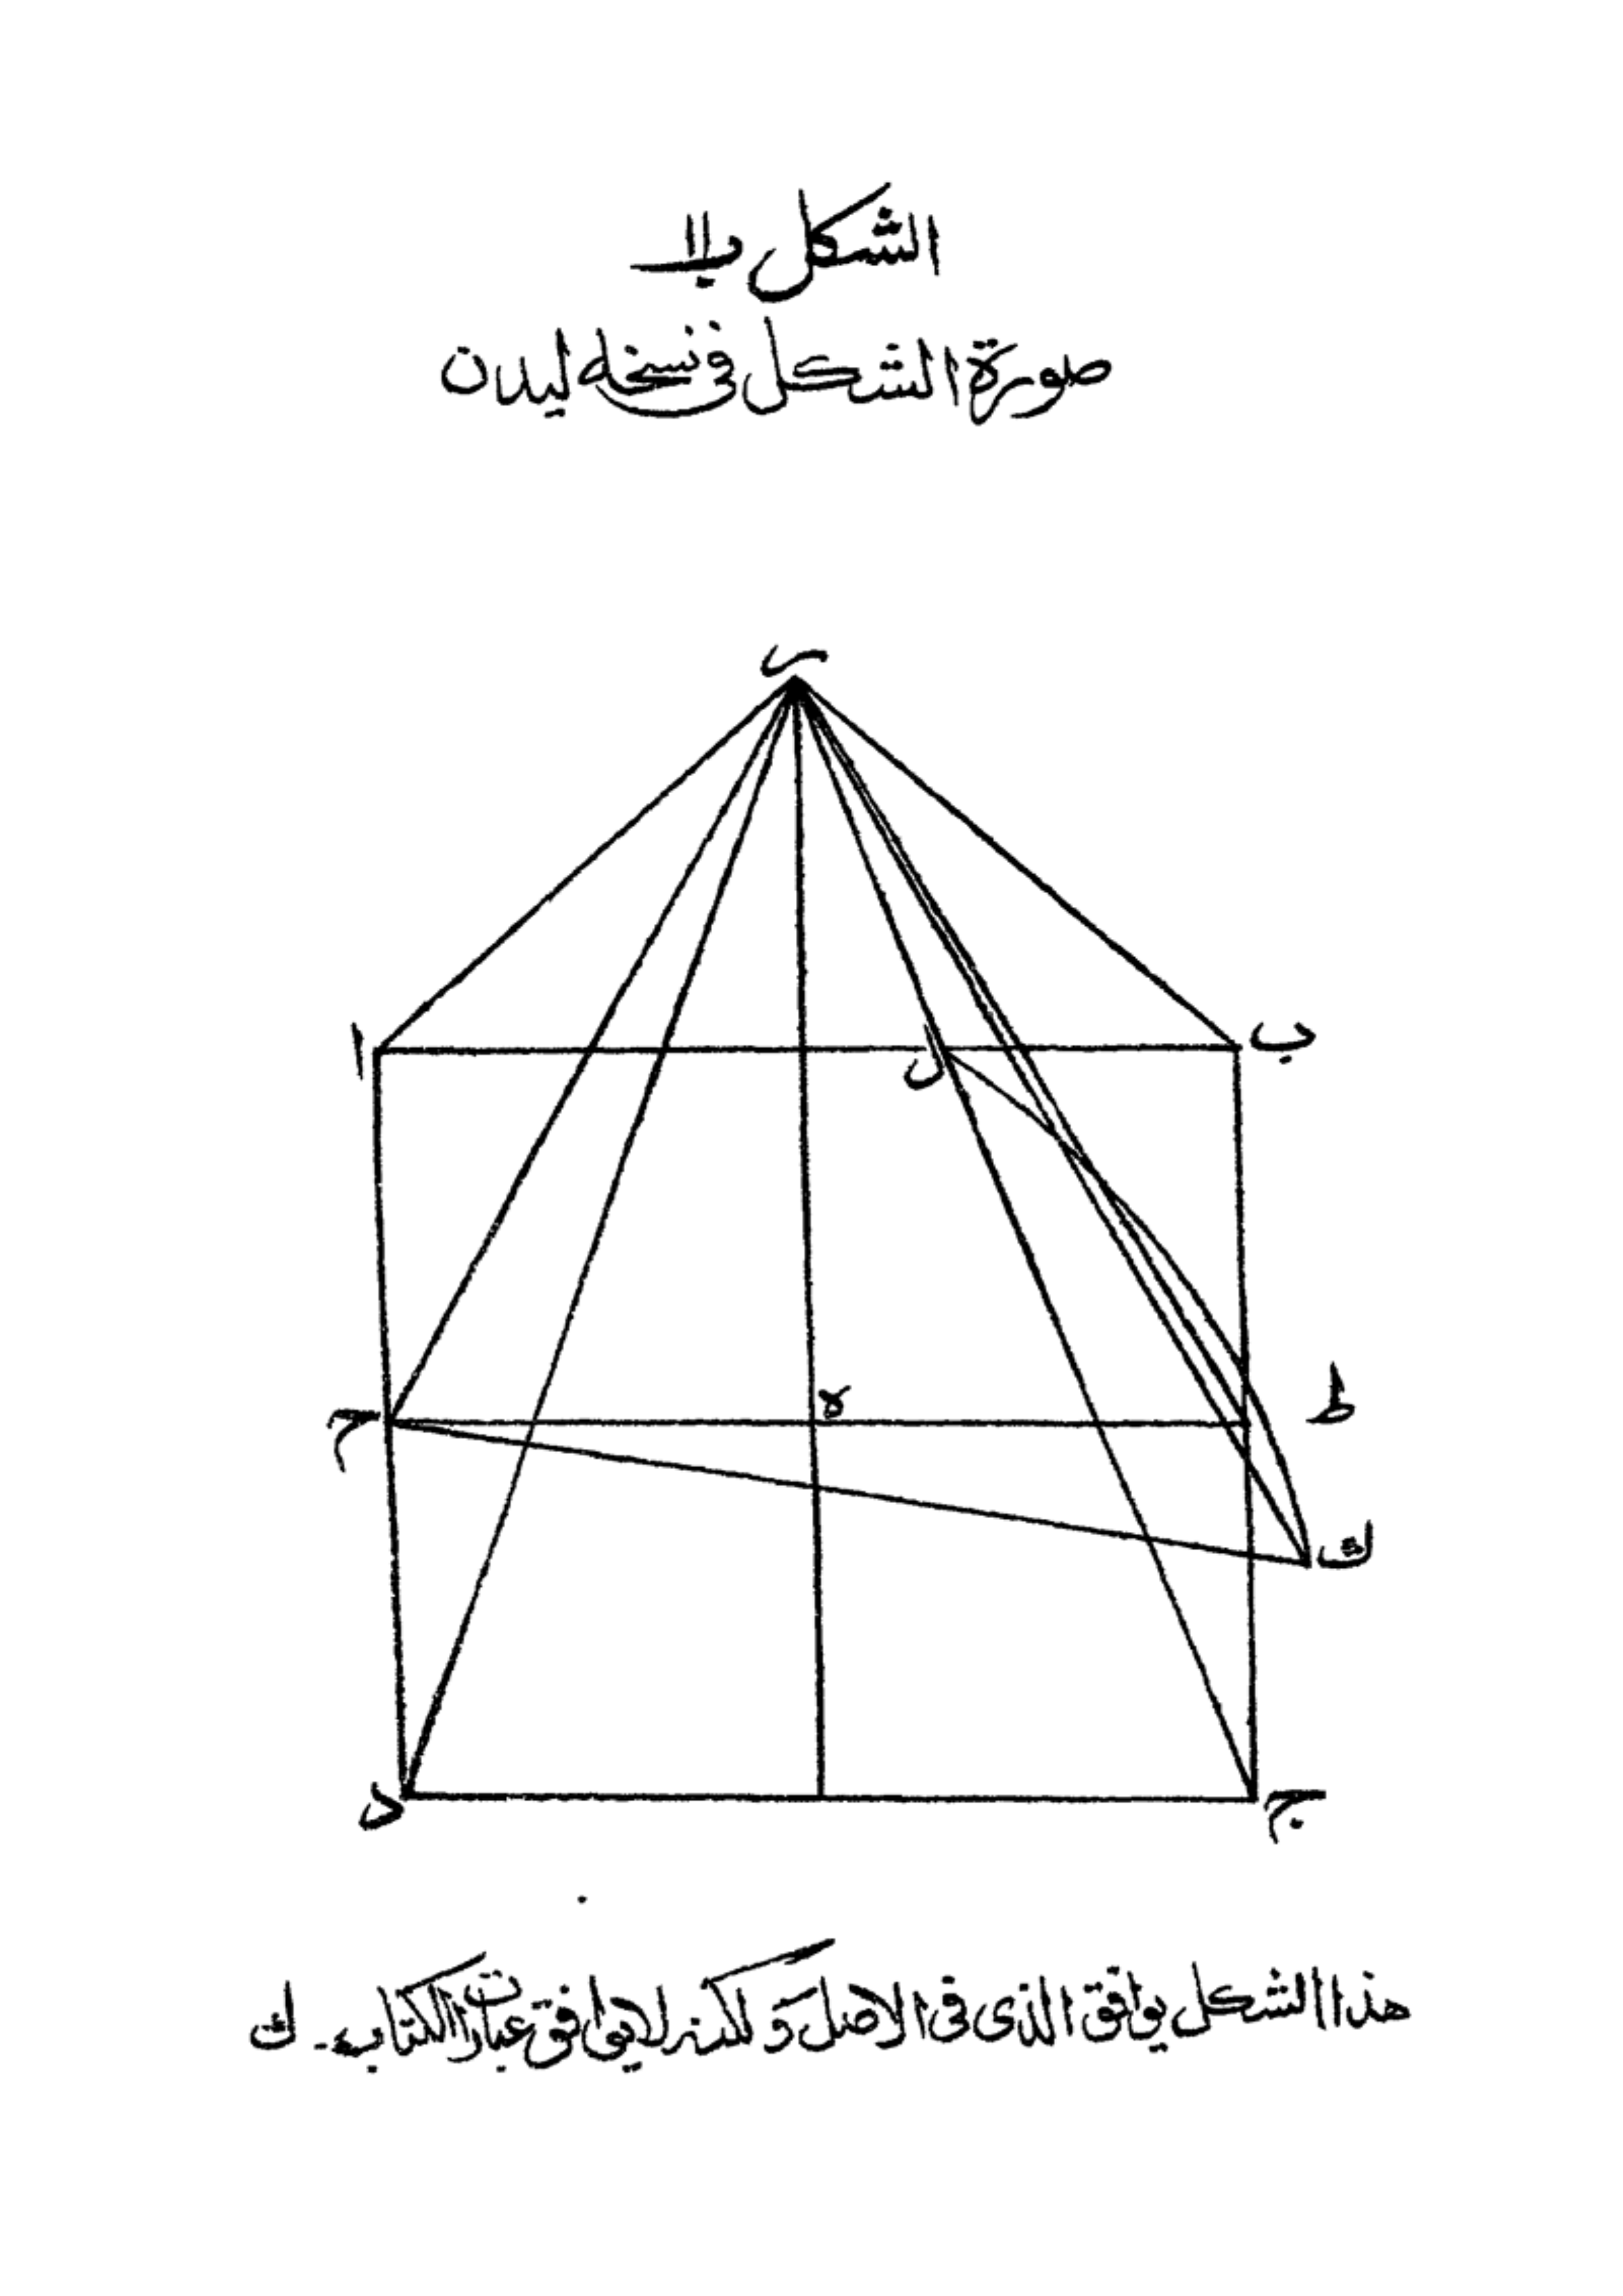 الشكل
صورة الشكل فى نسخة ليدن
ر
ا
ب
ل
ح
ه
ط
ك
د
ج
هذا الشكل يوافق الذى فى الاصل و لكنه لا يوافق عبارات الكتاب - ك